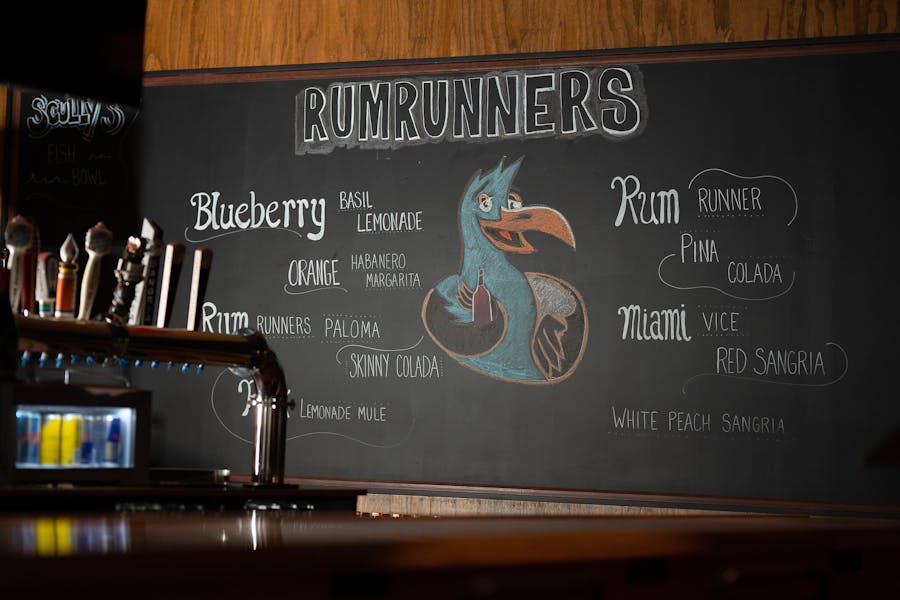 RUMRUNNERS
SCULLY'S
FISH
BOWL
Blueberry BASIL
LEMONADE
ORANGE HABANERO
MARGARITA
Rum RUNNERS PALOMA
SKINNY COLADA
LEMONADE MULE
Rum RUNNER
PINA
COLADA
Miami VICE
RED SANGRIA
WHITE PEACH SANGRIA